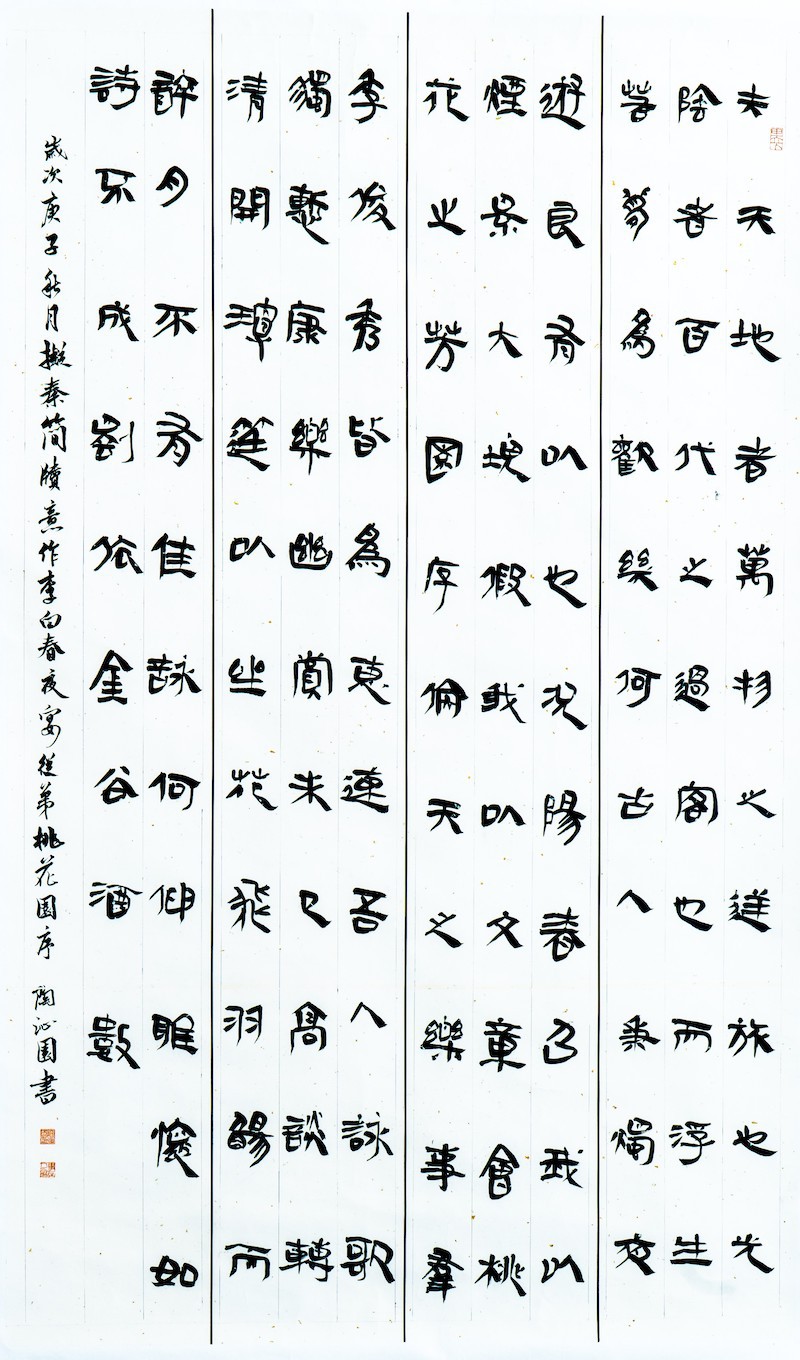 夫天地者萬物之逆旅也光
陰者百代之過客也而浮生
若夢為歡幾何古人秉燭夜
遊良有以也況陽春召我以
煙景大塊假我以文章會桃
花之芳園序倫天之樂事羣
季俊秀皆為惠連吾人詠歌
獨慙康樂幽賞未已高談轉
清開瓊筵以坐花飛羽觴而
醉月不有佳詠何伸雅懷如
詩不成罰依金谷酒數
歲次庚子秋月擬秦簡牘意作李白春夜宴從弟桃花園序 陶沁園書